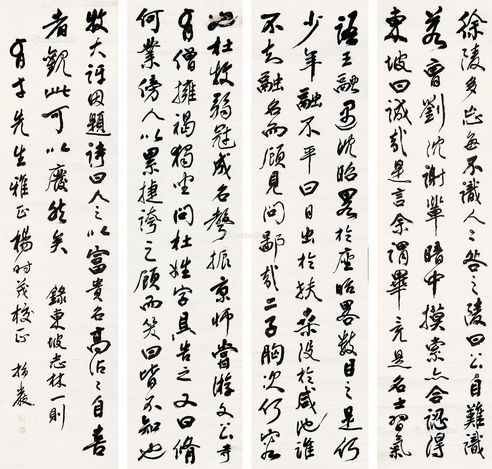 徐陵多忘每不識人人咎之陵曰公自難識
若曹劉沈謝輩暗中摸索亦合認得
東坡曰誠哉是言余謂畢竟是名士習氣
語王融遇沈昭畧於座昭畧數目之是何
少年融不平曰日出於扶桑沒於咸池誰
不知融名而顧見問鄙哉二子胸次何窄
也杜牧弱冠成名聲振京師嘗游文公寺
有僧擁褐獨坐問杜姓字具告之又曰脩
何業傍人以累捷誇之顧而笑曰皆不知也
牧大訝因題詩曰人之以富貴名高沾沾自喜
者觀此可以廢然矣 錄東坡志林一則
有才先生雅正楊時茂校正